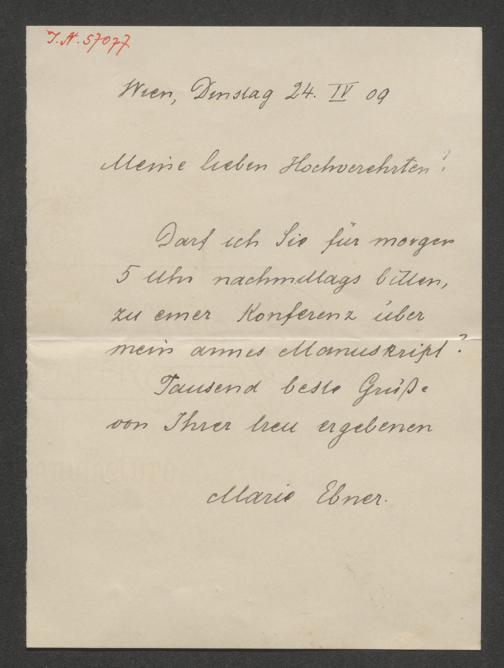 J.N. 57077
Wien, Dinstag 24. IV 09
Meine lieben Hochverehrten!
Darf ich Sie für morgen
5 Uhr nachmittags bitten,
zu einer Konferenz über
mein armes Manuskript?
Tausend beste Grüße
von Ihrer treu ergebenen
Marie Ebner.